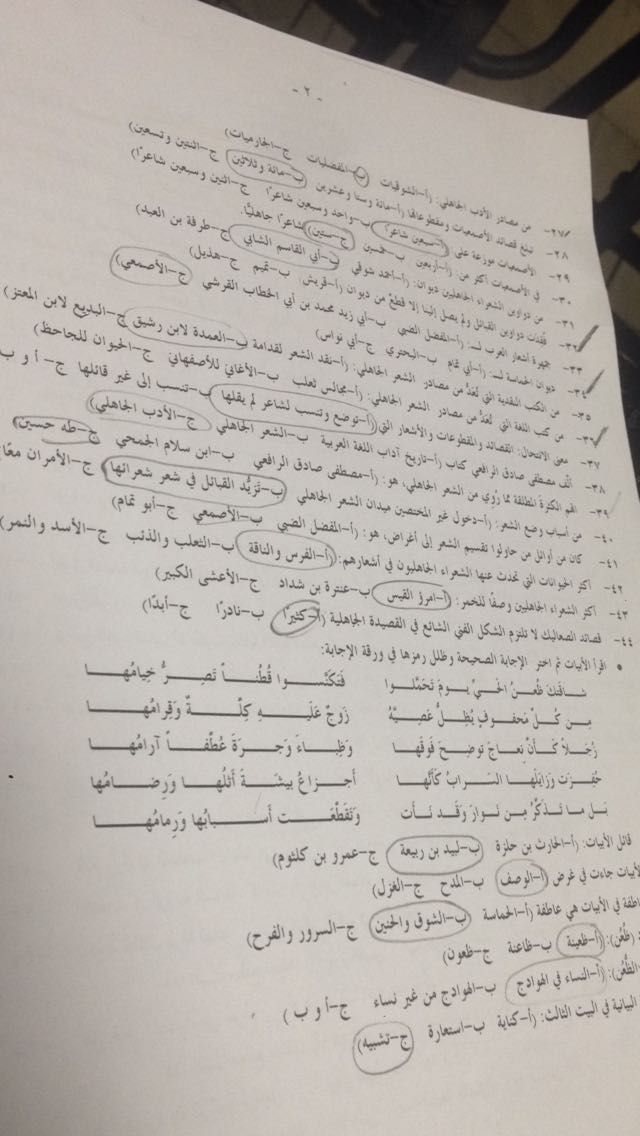 - ٢ -
٢٧- من مصادر الأدب الجاهلي: (أ-الشوقيات ب-المفضليات ج-الحازميات)
٢٨- تبلغ قصائد الأصمعيات ومقطوعاتها (أ-مائة وستا وعشرين ب-مائة وثلاثين ج-اثنتين وتسعين)
٢٩- الأصمعيات موزعة على (أ-سبعين شاعرًا ب-واحد وسبعين شاعرًا ج-اثنين وسبعين شاعرًا)
٣٠- في الأصمعيات أكثر من: (أ-أربعين ب-خمسين ج-ستين) شاعرًا جاهليًا.
٣١- من دواوين الشعراء الجاهليين ديوان: (أ-أحمد شوقي ب-أبي القاسم الشابي ج-طرفة بن العبد)
٣٢- فُقدت دواوين القبائل ولم يصل إلينا إلا قطع من ديوان (أ-قريش ب-تميم ج-هذيل)
٣٣- جمهرة أشعار العرب لـ: (أ-المفضل الضبي ب-أبي زيد محمد بن أبي الخطاب القرشي ج-الأصمعي)
٣٤- ديوان الحماسة لـ: (أ-أبي تمام ب-البحتري ج-أبي نواس)
٣٥- من الكتب النقدية التي تُعدُّ من مصادر الشعر الجاهلي: (أ-نقد الشعر لقدامة ب-العمدة لابن رشيق ج-البديع لابن المعتز)
٣٦- من كتب اللغة التي تُعدُّ من مصادر الشعر الجاهلي: (أ-مجالس ثعلب ب-الأغاني للأصفهاني ج-الحيوان للجاحظ)
٣٧- معنى الانتحال: القصائد والمقطوعات والأشعار التي (أ-توضع وتنسب لشاعر لم يقلها ب-تنسب إلى غير قائلها ج-أ و ب
٣٨- ألّف مصطفى صادق الرافعي كتاب (أ-تاريخ آداب اللغة العربية ب-الشعر الجاهلي ج-الأدب الجاهلي)
٣٩- اتهم الكثرة المطلقة مما رُوي من الشعر الجاهلي، هو: (أ-مصطفى صادق الرافعي ب-ابن سلام الجمحي ج-طه حسين)
٤٠- من أسباب وضع الشعر: (أ-دخول غير المختصين ميدان الشعر الجاهلي ب-تَزيُّد القبائل في شعر شعرائها ج-الأمران معًا
٤١- كان من أوائل من حاولوا تقسيم الشعر إلى أغراض، هو: (أ-المفضل الضبي ب-الأصمعي ج-أبو تمام)
٤٢- أكثر الحيوانات التي تحدث عنها الشعراء الجاهليون في أشعارهم: (أ-الفرس والناقة ب-الثعلب والذئب ج-الأسد والنمر)
٤٣- أكثر الشعراء الجاهليين وصفًا للخمر: (أ-امرؤ القيس ب-عنترة بن شداد ج-الأعشى الكبير)
٤٤- قصائد الصعاليك لا تلتزم الشكل الفني الشائع في القصيدة الجاهلية (أ-كثيرًا ب-نادرًا ج-أبدًا)
• اقرأ الأبيات ثم اختر الإجابة الصحيحة وظلل رمزها في ورقة الإجابة:
شاقتك ظُعنُ الحَيِّ يومَ تَحَمَّلوا فَتَكَنَّسوا قُطُناً تَصِرُّ خِيامُها
مِن كُلِّ مَحفوفٍ يُظِلُّ عَصِيَّهُ زَوجٌ عَلَيهِ كِلَّةٌ وَقِرامُها
زُجَلاً كَأَنَّ نِعاجَ توضِحَ فَوقَها وَظِباءَ وَجرَةَ عُطَّفاً آرامُها
حُفِزَت وَزايَلَها السَرابُ كَأَنَّها أَجزاعُ بيشَةَ أَثلُها وَرِضامُها
بَل ما تَذَكَّرُ مِن نَوارَ وَقَد نَأَت وَتَقَطَّعَت أَسبابُها وَرِمامُها
قائل الأبيات: (أ-الحارث بن حلزة ب-لبيد بن ربيعة ج-عمرو بن كلثوم)
الأبيات جاءت في غرض (أ-الوصف ب-المدح ج-الغزل)
اطفة في الأبيات هي عاطفة (أ-الحماسة ب-الشوق والحنين ج-السرور والفرح)
(ظُعُن): (أ-ظعينة ب-ظاعنة ج-ظعون)
الظُّعُن): (أ-النساء في الهوادج ب-الهوادج من غير نساء ج-أ و ب )
البيانية في البيت الثالث: (أ-كناية ب-استعارة ج-تشبيه)